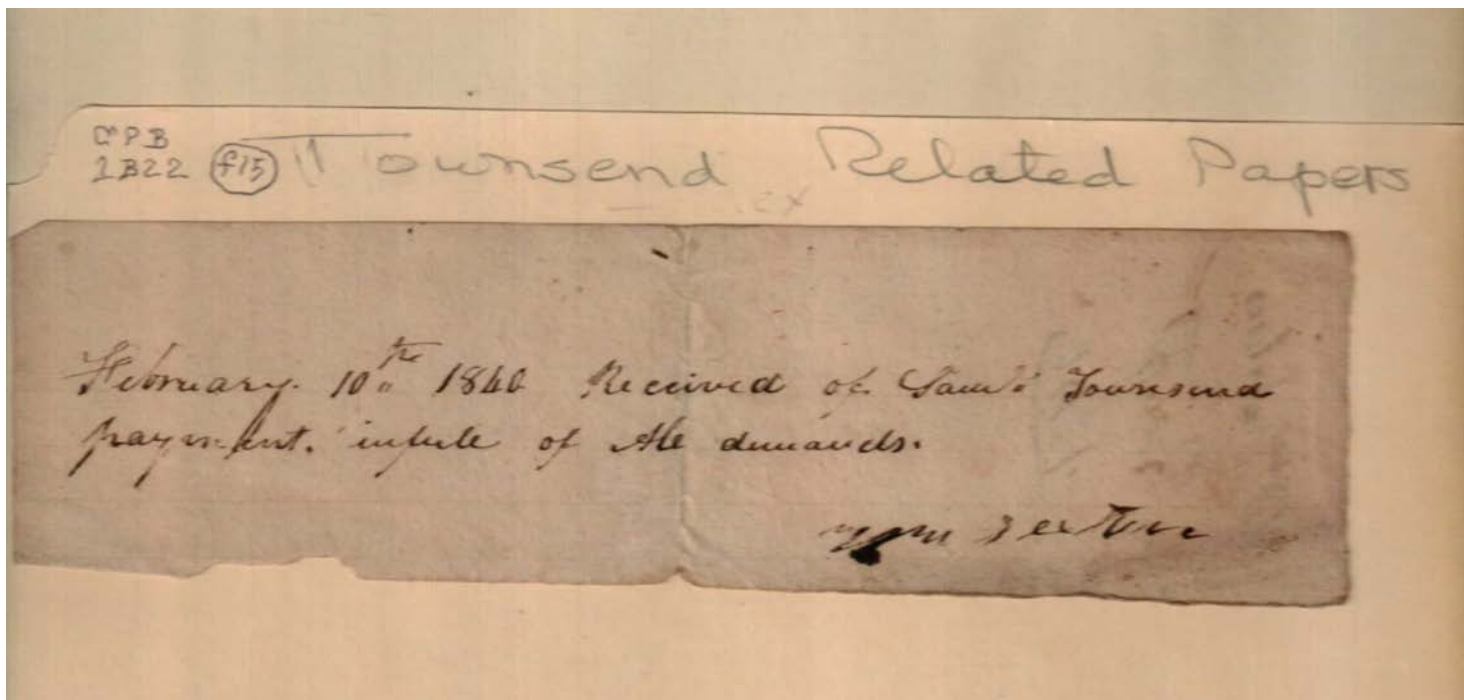 CPB
1B22 f15 Townsend Related Papers
February 10th 1840 Received of Saml Townsend
payment. infull of All demands.
Wm